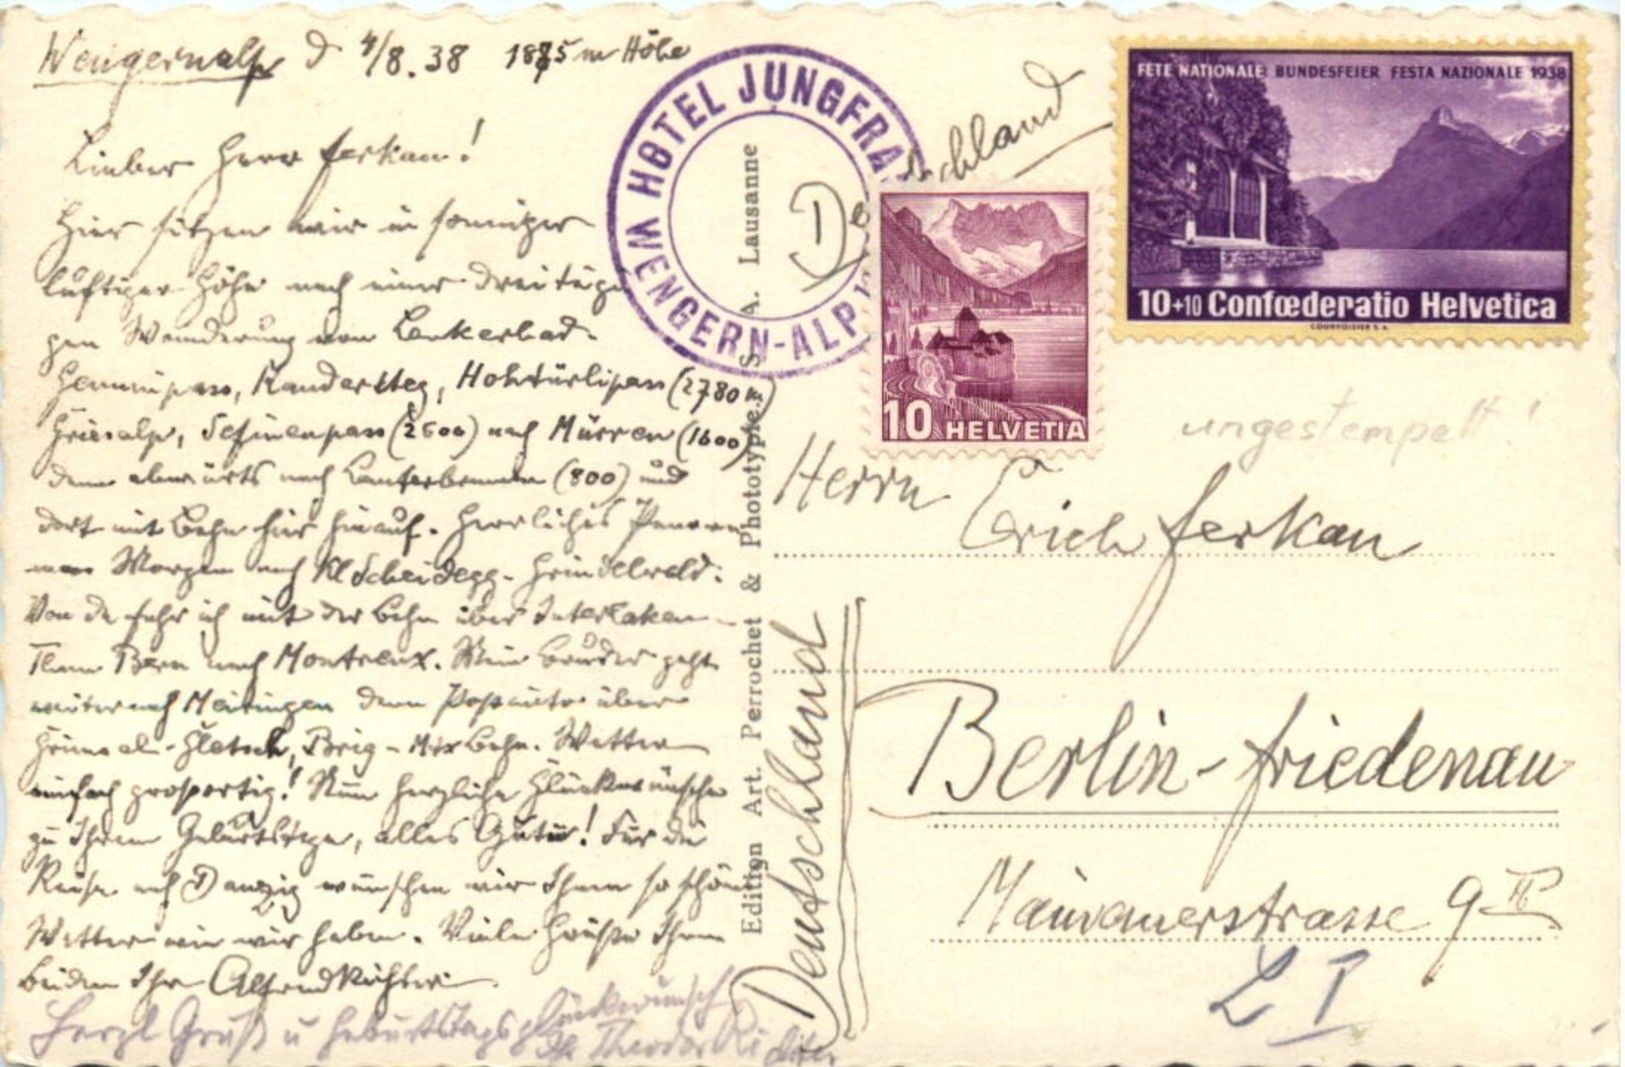 Wengernalp d 4/8.38 1875 m Höhe
Lieber Herr Ferkau!
Hier sitzen wir in sonniger
luftiger Höhe nach einer dreitägi
gen Wanderung von Leukerbad-
Gemmipass, Kandersteg, Hohtürlipass (2780 m)
Griesalp, Sefinenpass (2600) nach Mürren (1600)
dann abwärts nach Lauterbrunnen (800) und
dort mit Bahn hier hinauf. Herrliches Panora
ma. Morgen nach Kl Scheidegg - Grindelwald.
Von da fahr ich mit der Bahn über Interlaken -
Thun Bern nach Montreux. Mein Bruder geht
weiter nach Meiringen dann Postauto über
Grimsel - Gletsch, Brig - Bahn. Wetter
einfach großartig! Nun herzliche Glückwünsche
zu Ihrem Geburtstage, alles Gute! Für die
Reise nach Danzig wünschen wir Ihnen so schön
Wetter wie wir haben. Viele Grüße Ihnen
beiden Ihr Alfred Richter
Herzl Gruß u Geburtstagsglückwunsch
Ihr Theodor Richter
HOTEL JUNGFRA
WENGERN-ALP
Edition Art. Perrochet & Phototypie S. A. Lausanne
Deutschland
De chland
10 HELVETIA
FETE NATIONALE BUNDESFEIER FESTA NAZIONALE 1938
10+10 Confœderatio Helvetica
COURVOISIER S.A.
ungestempelt!
Herrn Erich Ferkau
Berlin-Friedenau
Mainauerstrasse 9 II
L I